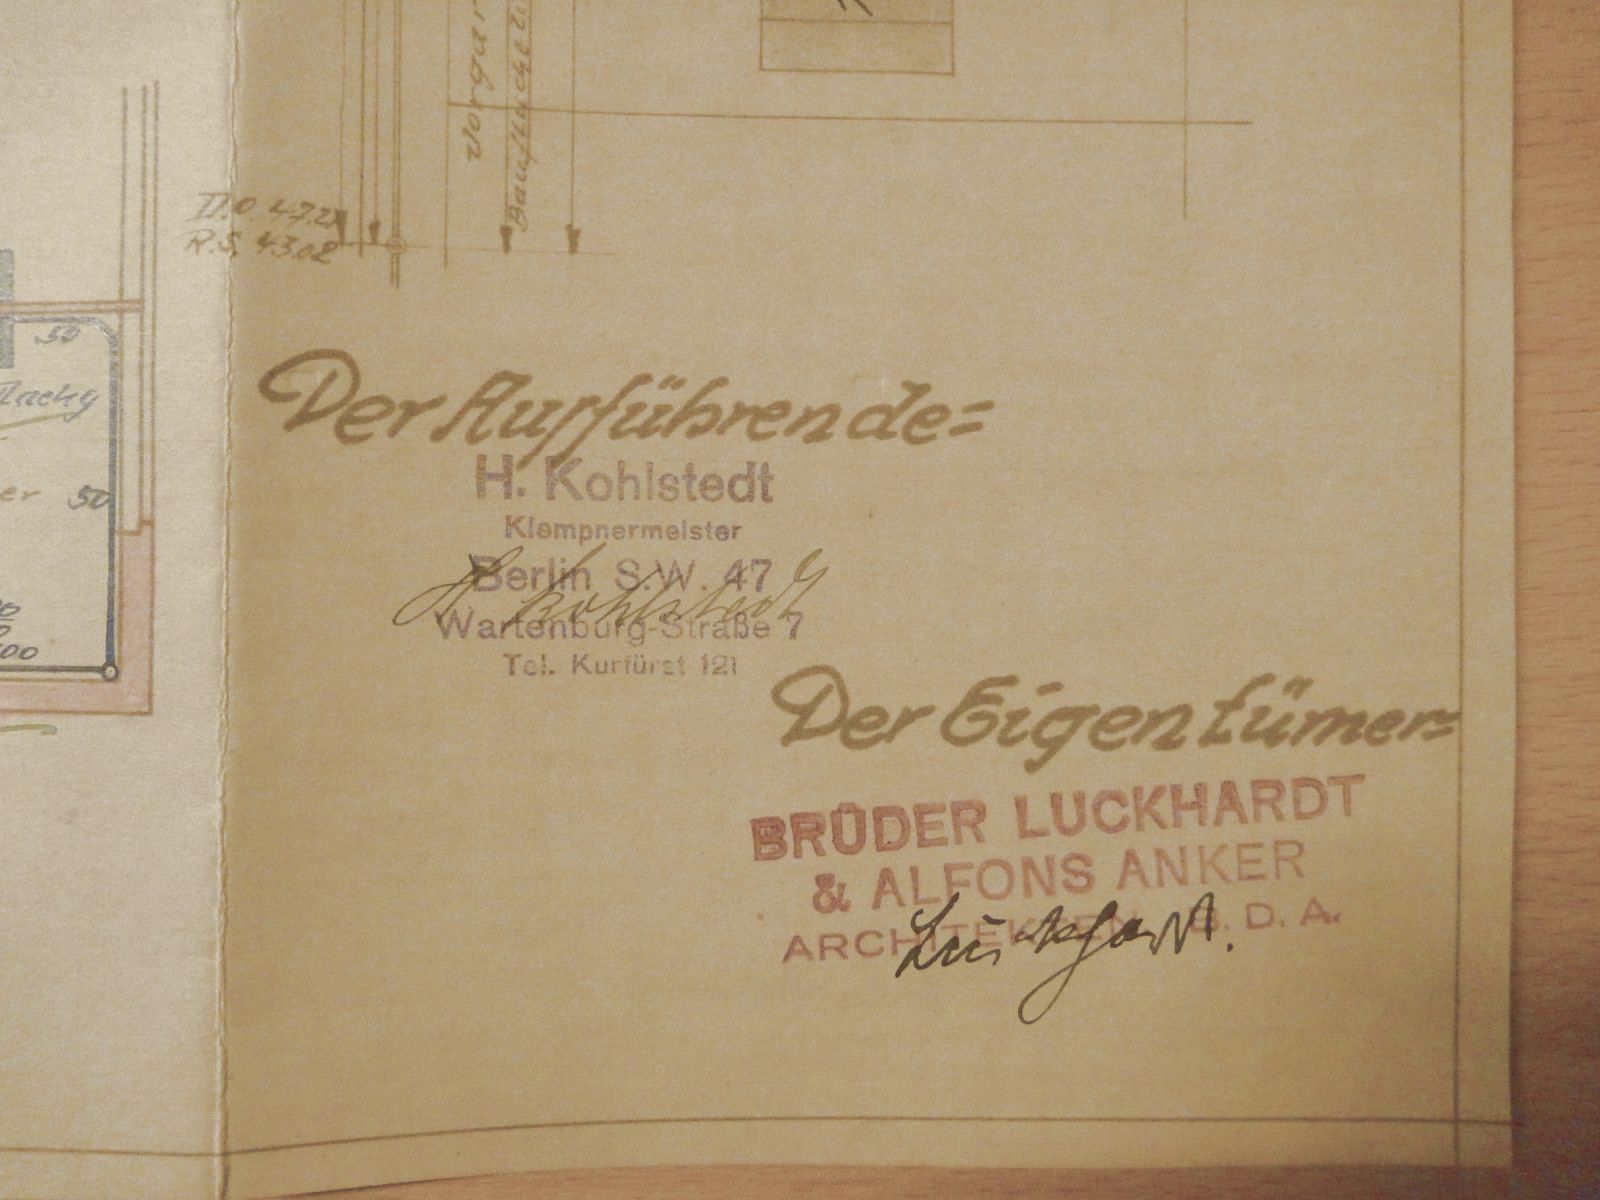 Vorgar
Baufluchtli
D.O. 47.21
R.S. 43.02
50
50
er
00
Der Ausführende=
H. Kohlstedt
Klempnermeister
Berlin S.W. 47
H Kohlstedt
Wartenburg-Straße 7
Tel. Kurfürst 121
Der Eigentümer=
BRÜDER LUCKHARDT
& ALFONS ANKER
ARCHITEKTEN B. D. A.
Luckhardt.